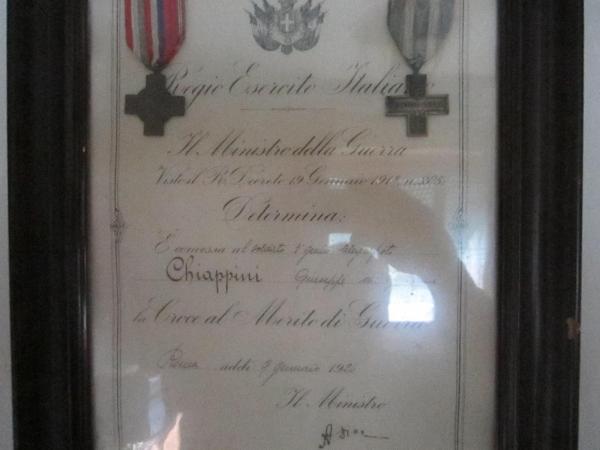 Regio Esercito Italiano
Il Ministro della Guerra
Visto il R. Decreto 19 Gennaio 1918, n.
Determina:
È concessa al soldato
Chiappini Giuseppe
la Croce al Merito di Guerra
addì 9 gennaio 192
Il Ministro